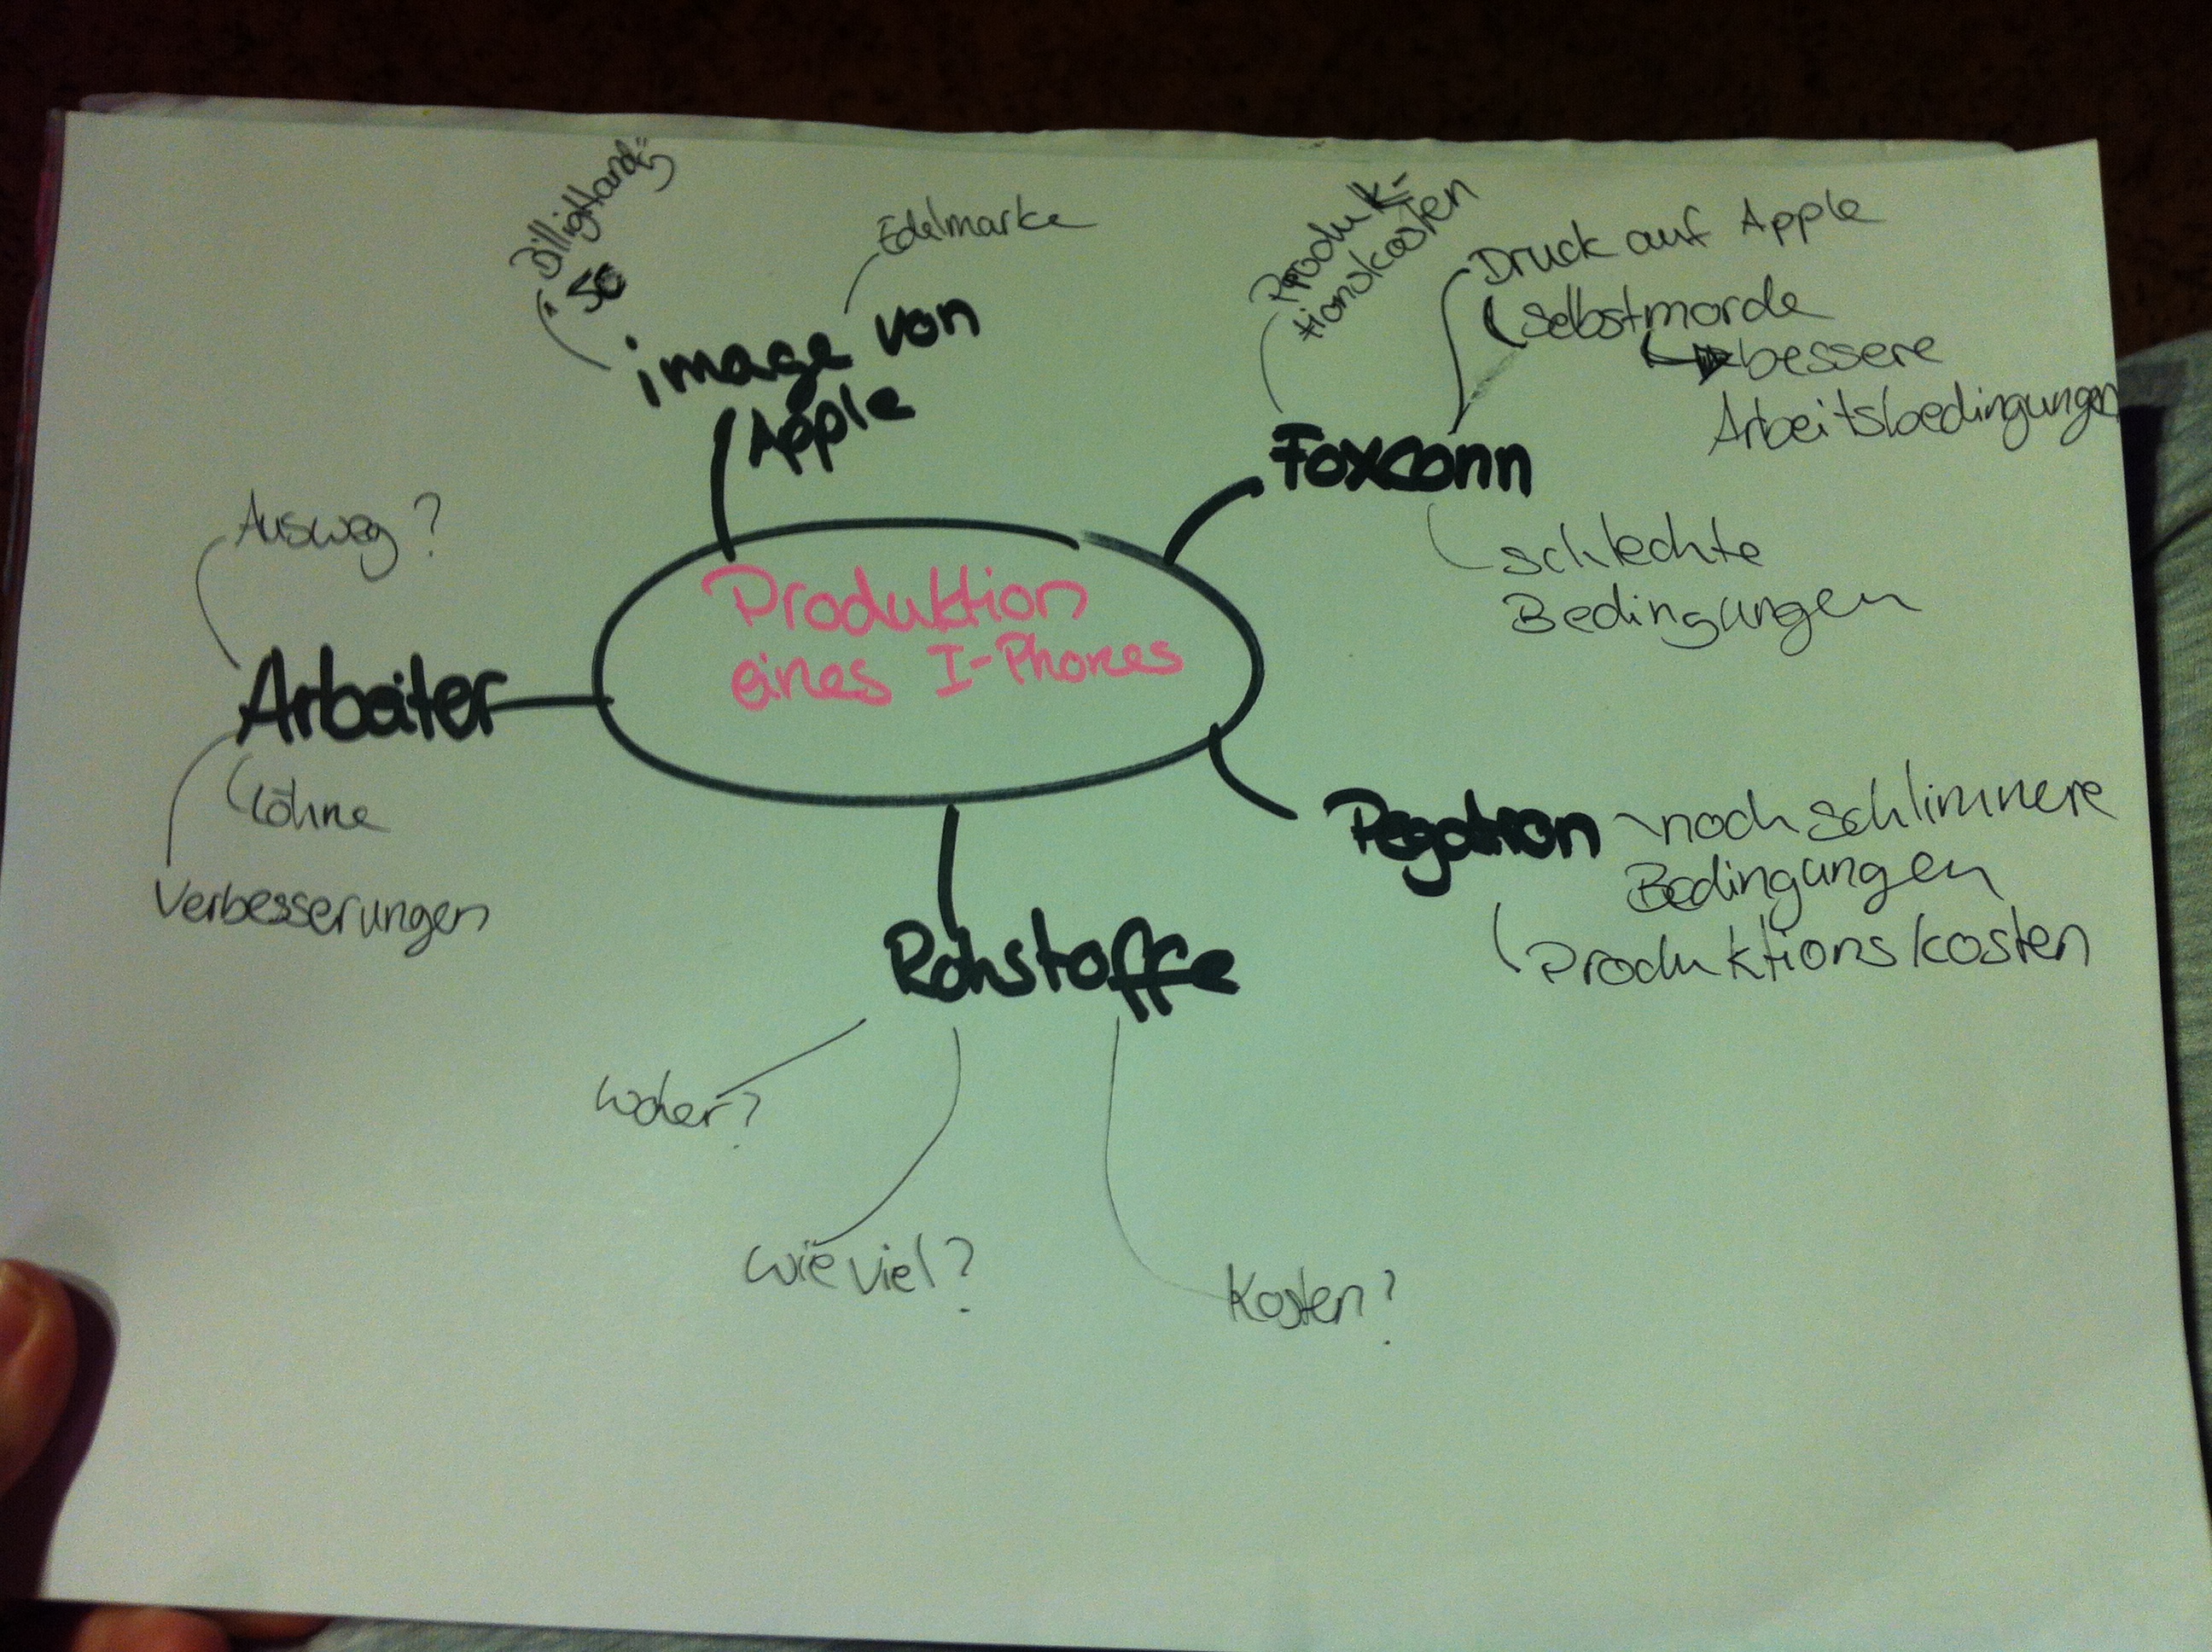 Billighandy
5C
Edelmarke
image von
Apple
Produk-
tionskosten
Druck auf Apple
Selbstmorde
bessere
Arbeitsbedingungen
Foxconn
schlechte
Bedingungen
Ausweg?
Arbeiter
Löhne
Verbesserungen
Produktion
eines I-Phones
Pegatron
noch schlimmere
Bedingungen
Produktionskosten
Rohstoffe
woher?
wie viel?
Kosten?